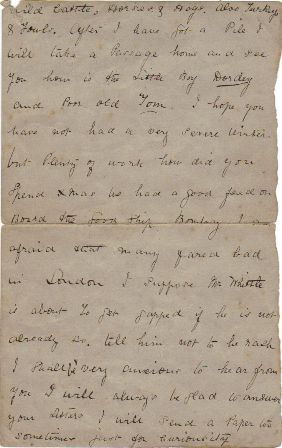 Wild Cattle, Horses & Hogs, also Turkeys
& Fowls. After I have got a Pile I
will take a Passage home and see
you how is the Little Boy Dordey
and Poor old Tom. I hope you
have not had a very severe Winter
but Plenty of work how did you
Spend Xmas we had a good feed on
Board the Good Ship Bombay I am
afraid that many fared bad
in London I suppose Mr Whittle
is about to get
if he is not
already so. tell him not to be rash
I shall be very anxious to hear from
you I will always be glad to answer
your letters I will send a Paper
sometimes just for curiosity